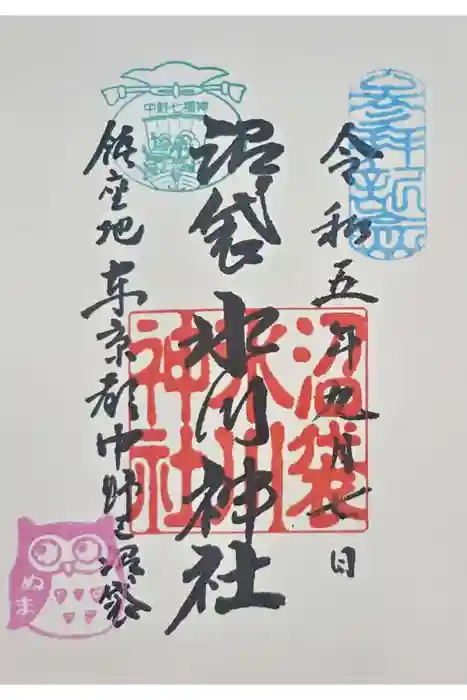 参拝記念
令和五年九月七日
沼袋氷川神社
沼袋
氷川
神社
中野七福神
鎮座地 东京都中野区沼袋
ぬま